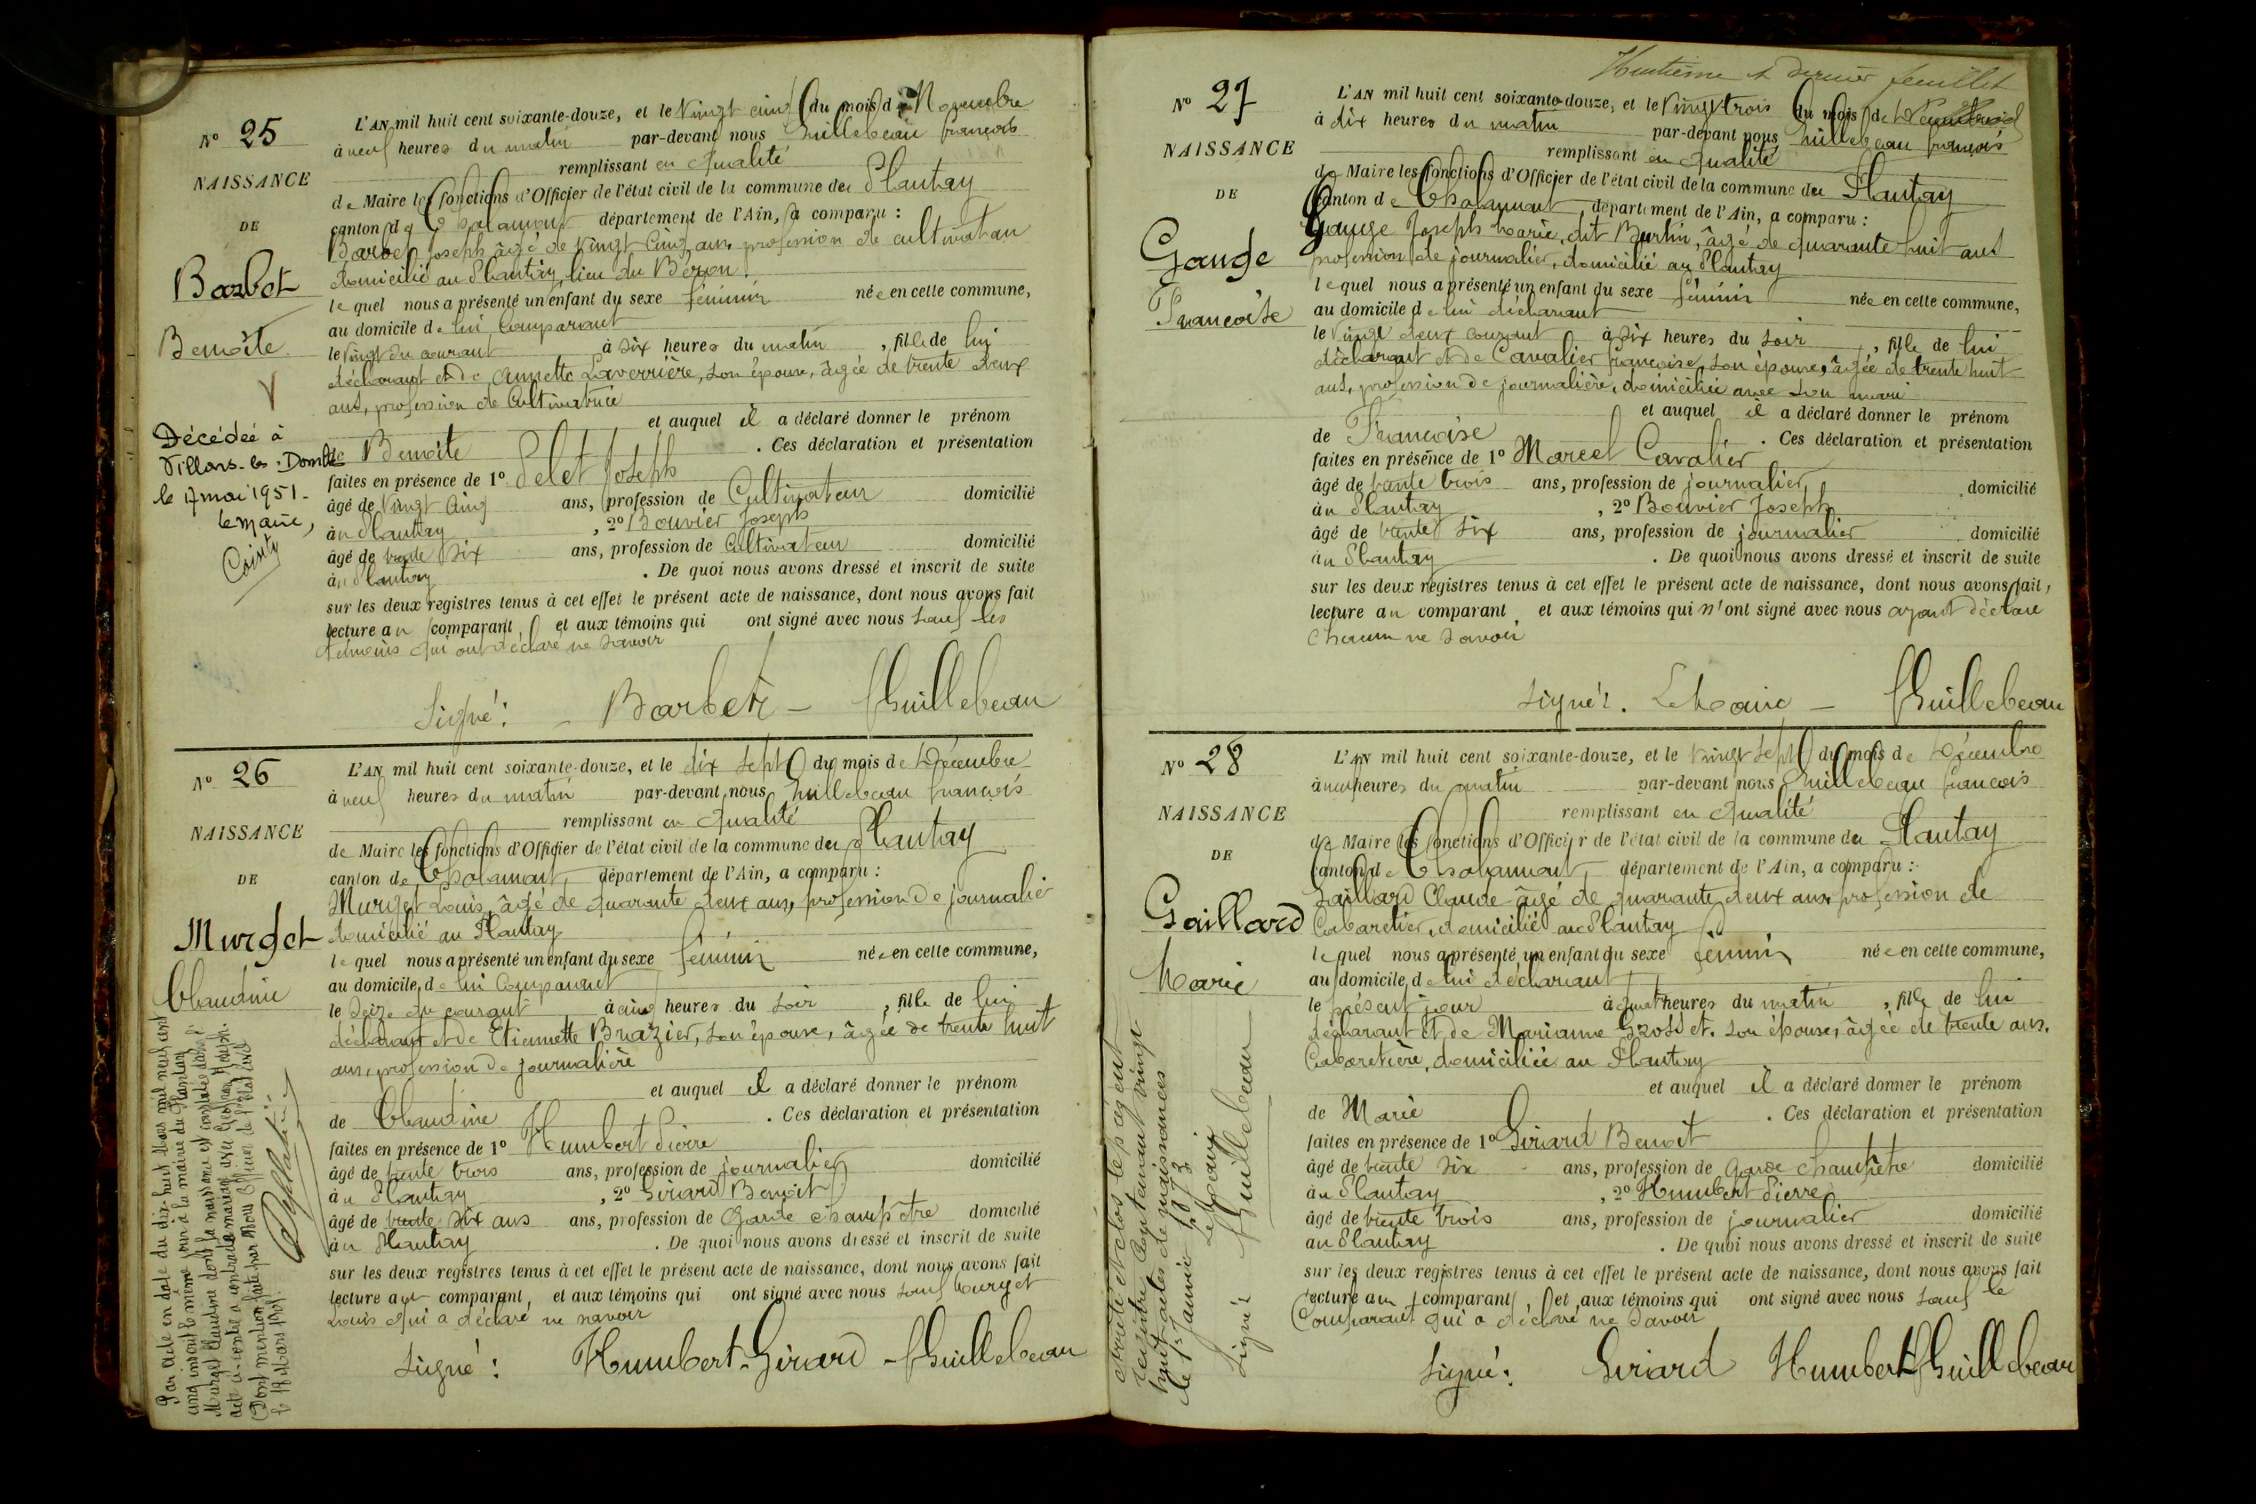 N° 25
NAISSANCE
DE
Barbet
Benoîte
Décédée à
Villars-les-Dombes
le 17 mai 1951.
Le Maire,
L'AN mil huit cent soixante-douze, et le Vingt cinq du mois de Novembre
à neuf heures du matin par-devant nous Guillebeau françois
remplissant en qualité
de Maire les fonctions d'Officier de l'état civil de la commune du Plantay
canton de Chalamont département de l'Ain, a comparu :
Barbet Joseph âgé de vingt cinq ans, profession de cultivateur
domicilié au Plantay, lieu du Béron.
lequel nous a présenté un enfant du sexe féminin née en cette commune,
au domicile de lui Comparant
le Vingt du courant à six heures du matin, fille de lui
déclarant et de Annette Laverrière, son épouse, âgée de trente deux
ans, profession de Cultivatrice
et auquel il a déclaré donner le prénom
de Benoîte . Ces déclaration et présentation
faites en présence de 1° Pelet Joseph
âgé de Vingt Cinq ans, profession de Cultivateur domicilié
au Plantay , 2° Bouvier Joseph
âgé de trente six ans, profession de Cultivateur domicilié
au Plantay . De quoi nous avons dressé et inscrit de suite
sur les deux registres tenus à cet effet le présent acte de naissance, dont nous avons fait
lecture au comparant, et aux témoins qui ont signé avec nous sauf les
témoins qui ont déclaré ne savoir
Signé : Barbet - Guillebeau
N° 26
NAISSANCE
DE
Murget
Claudine
Par acte en date du dix-huit Mars mil neuf cent
cinq inscrit le même jour à la mairie du Plantay
Murget Claudine dont la naissance est constatée dans
acte ci-contre a contracté mariage avec
Dont mention faite par Nous Officier de l'état civil
le 18 Mars 1905.
L'AN mil huit cent soixante-douze, et le dix sept du mois de Décembre
à neuf heures du matin par-devant nous Guillebeau françois
remplissant en qualité
de Maire les fonctions d'Officier de l'état civil de la commune du Plantay
canton de Chalamont, département de l'Ain, a comparu :
Murget Louis, âgé de quarante deux ans, profession de journalier
domicilié au Plantay
lequel nous a présenté un enfant du sexe féminin née en cette commune,
au domicile de lui Comparant
le seize du courant à cinq heures du soir, fille de lui
déclarant et de Etiennette Brazier, son épouse, âgée de trente huit
ans, profession de journalière
et auquel il a déclaré donner le prénom
de Claudine . Ces déclaration et présentation
faites en présence de 1° Humbert Pierre
âgé de trente trois ans, profession de journalier domicilié
au Plantay , 2° Girard Benoit
âgé de trente six ans ans, profession de Garde champêtre domicilié
au Plantay . De quoi nous avons dressé et inscrit de suite
sur les deux registres tenus à cet effet le présent acte de naissance, dont nous avons fait
lecture au comparant, et aux témoins qui ont signé avec nous sauf Murget
Louis qui a déclaré ne savoir
Signé : Humbert - Girard - Guillebeau
Huitième & dernier feuillet
N° 27
NAISSANCE
DE
Gauge
Françoise
L'AN mil huit cent soixante-douze, et le Vingt-trois du mois de Décembre
à dix heures du matin par-devant nous Guillebeau françois
remplissant en qualité
de Maire les fonctions d'Officier de l'état civil de la commune du Plantay
Canton de Chalamont, département de l'Ain, a comparu :
Gauge Joseph Marie, dit Burtin, âgé de quarante huit ans
profession de journalier, domicilié au Plantay
lequel nous a présenté un enfant du sexe féminin née en cette commune,
au domicile de lui déclarant
le Vingt deux courant à six heures du soir, fille de lui
déclarant et de Cavalier françoise, son épouse, âgée de trente huit
ans, profession de journalière, domiciliée avec son mari
et auquel il a déclaré donner le prénom
de Françoise . Ces déclaration et présentation
faites en présence de 1° Marcel Cavalier
âgé de trente trois ans, profession de journalier, domicilié
au Plantay , 2° Bouvier Joseph
âgé de trente six ans, profession de journalier domicilié
au Plantay . De quoi nous avons dressé et inscrit de suite
sur les deux registres tenus à cet effet le présent acte de naissance, dont nous avons fait,
lecture au comparant et aux témoins qui n'ont signé avec nous ayant déclaré
chacun ne savoir
Signé : Le Maire - Guillebeau
N° 28
NAISSANCE
DE
Gaillard
Marie
L'AN mil huit cent soixante-douze, et le vingt sept du mois de Décembre
à neuf heures du matin par-devant nous Guillebeau françois
remplissant en qualité
de Maire les fonctions d'Officier de l'état civil de la commune du Plantay
Canton de Chalamont, département de l'Ain, a comparu :
Gaillard Claude âgé de quarante deux ans, profession de
Cabaretier, domicilié au Plantay
lequel nous a présenté un enfant du sexe féminin née en cette commune,
au domicile de lui déclarant
le présent jour à quatre heures du matin, fille de lui
déclarant et de Marianne Grosset, son épouse, âgée de trente ans.
Cabaretière, domiciliée au Plantay
et auquel il a déclaré donner le prénom
de Marie . Ces déclaration et présentation
faites en présence de 1° Girard Benoit
âgé de trente six ans, profession de Garde champêtre domicilié
au Plantay , 2° Humbert Pierre
âgé de trente trois ans, profession de journalier domicilié
au Plantay . De quoi nous avons dressé et inscrit de suite
sur les deux registres tenus à cet effet le présent acte de naissance, dont nous avons fait
lecture au comparant, et aux témoins qui ont signé avec nous sauf le
Comparant qui a déclaré ne savoir
Signé : Girard Humbert Guillebeau
Arrêté et clos le présent
registre contenant vingt
huit actes de naissances
le 1er Janvier 1873
Le Maire
Signé Guillebeau